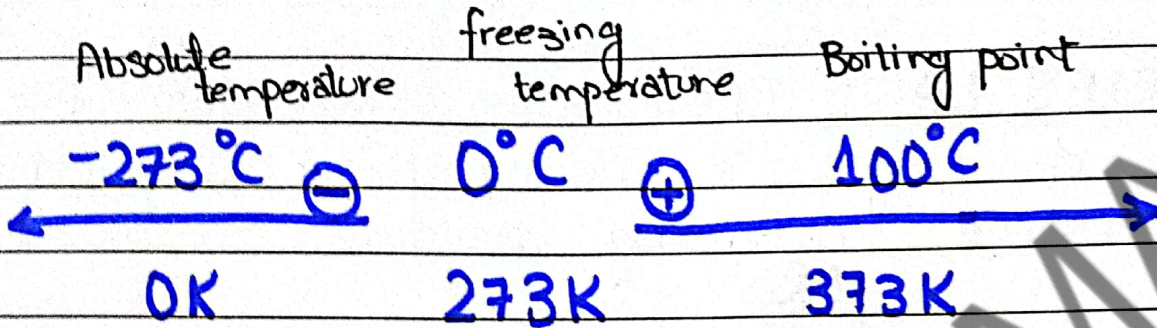 Absolute temperature freezing temperature Boiling point
-273°C ⊖ 0°C ⊕ 100°C
0K 273K 373K